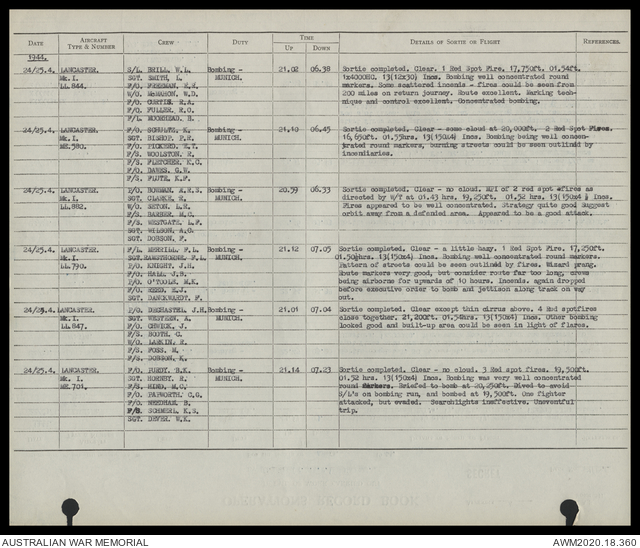 DATE AIRCRAFT TYPE & NUMBER CREW DUTY TIME UP DOWN DETAILS OF SORTIE OR FLIGHT REFERENCES.
1944.
24/25.4. LANCASTER. S/L. BRILL, W.L. Bombing - 21.02 06.38 Sortie completed. Clear. 1 Red Spot Fire. 17,750ft. 01.54ft.
Mk.I. SGT. SMITH, L. MUNICH. 1x4000HC, 13(12x30) Incs. Bombing well concentrated round
LL.844. F/O. FREEMAN, markers. Some scattered incends - fires could be seen from
W/O. McMAHON, W.D. 200 miles on return journey. Route excellent. Marking tech-
F/O. CURTIS, R.A. nique and control excellent. Concentrated bombing.
F/O. FULLER, R.O.
F/L. MOORHEAD, B.
24/25.4. LANCASTER. P/O. SCHULTZ, K. Bombing - 21.10 06.45 Sortie completed. Clear - some cloud at 20,000ft. 2 Red Spot Fires.
Mk.I. SGT. BISHOP, P.R. MUNICH. 16,650ft. 01.55hrs. 13(150x4) Incs. Bombing being well concen-
ME.580. F/O. PICKERD, trated round markers, burning streets could be seen outlined by
F/S. WOOLSTON, R. incendiaries.
F/S. FLETCHER, K.C.
F/O. DAKES, G.W.
F/S. FLUTE, K.F.
24/25.4. LANCASTER. P/O. BOWMAN, A.R.S. Bombing - 20.59 06.33 Sortie completed. Clear - no cloud. MPI of 2 red spot fires as
Mk.I. SGT. CLARKE, MUNICH. directed by W/T at 01.43 hrs. 19,250ft. 01.52 hrs. 13(150x4) Incs.
LL.882. W/O. SETON, L.E. Fires appeared to be well concentrated. Strategy quite good Suggest
F/S. BARBER, M.C. orbit away from a defended area. Appeared to be a good attack.
F/S. WESTGATE, L.F.
SGT. WILSON, A.G.
SGT. DOBSON, F.
24/25.4. LANCASTER. F/L. MERRILL, F.L. Bombing - 21.12 07.05 Sortie completed. Clear - a little hazy. 1 Red Spot Fire, 17,250ft.
Mk.I. SGT. RAWSTHORNE, F.L. MUNICH. 01.50½hrs. 13(150x4) Incs. Bombing well concentrated round markers.
LL.790. F/O. KNIGHT, J.H. Pattern of streets could be seen outlined by fires. Wizard prang.
F/O. HALL, J.S. Route markers very good, but consider route far too long, crews
P/O. O'TOOLE, M.K. being airborne for upwards of 10 hours. Incends. again dropped
F/O. REED, E.J. before executive order to bomb and jettison along track on way
SGT. DANCKWARDT, F. out.
24/25.4. LANCASTER. P/O. DECHASTEL, J.H. Bombing - 21.01 07.04 Sortie completed. Clear except thin cirrus above. 4 Red spotfires
Mk.I. SGT. WESTERN, A. MUNICH. close together. 21,200ft. 01.54hrs. 13(150x4) Incs. Other bombing
LL.847. F/O. CHWICK, J. looked good and built-up area could be seen in light of flares.
F/S. BOOTH, C.
W/O. LARKIN, R.
F/S. FOSS, M.
F/S. DOBSON, K.
24/25.4. LANCASTER. F/O. PURDY, R.K. Bombing - 21.14 07.23 Sortie completed. Clear - no cloud. 3 Red spot fires. 19,500ft.
Mk. I. SGT. HORNBY, R. MUNICH. 01.52 hrs. 13(150x4) Incs. Bombing was very well concentrated
ME.701. F/S. HIND, M.C. round markers. Briefed to bomb at 20,250ft. Dived to avoid
F/O. PAPWORTH, C.G. S/L's on bombing run, and bombed at 19,500ft. One fighter
F/O. NEEDHAM, B. attacked, but evaded. Searchlights ineffective. Uneventful
F/S. SCHNERL, K.S. trip.
SGT. DEVER, W.K.
AUSTRALIAN WAR MEMORIAL AWM2020.18.360